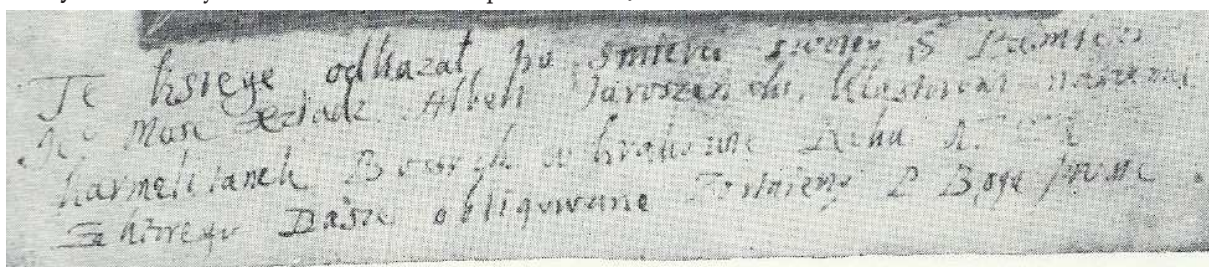 Tę księgę odkazał po śmierci swoiey S Pamięci
Je° Mość Xziądz Albert Jaroszeński, Klastorowi naszemu
karmelitanek Bossych w krakowie Roku
Za ktorego Dusze obligowane Iestesmy P Boga prosic.